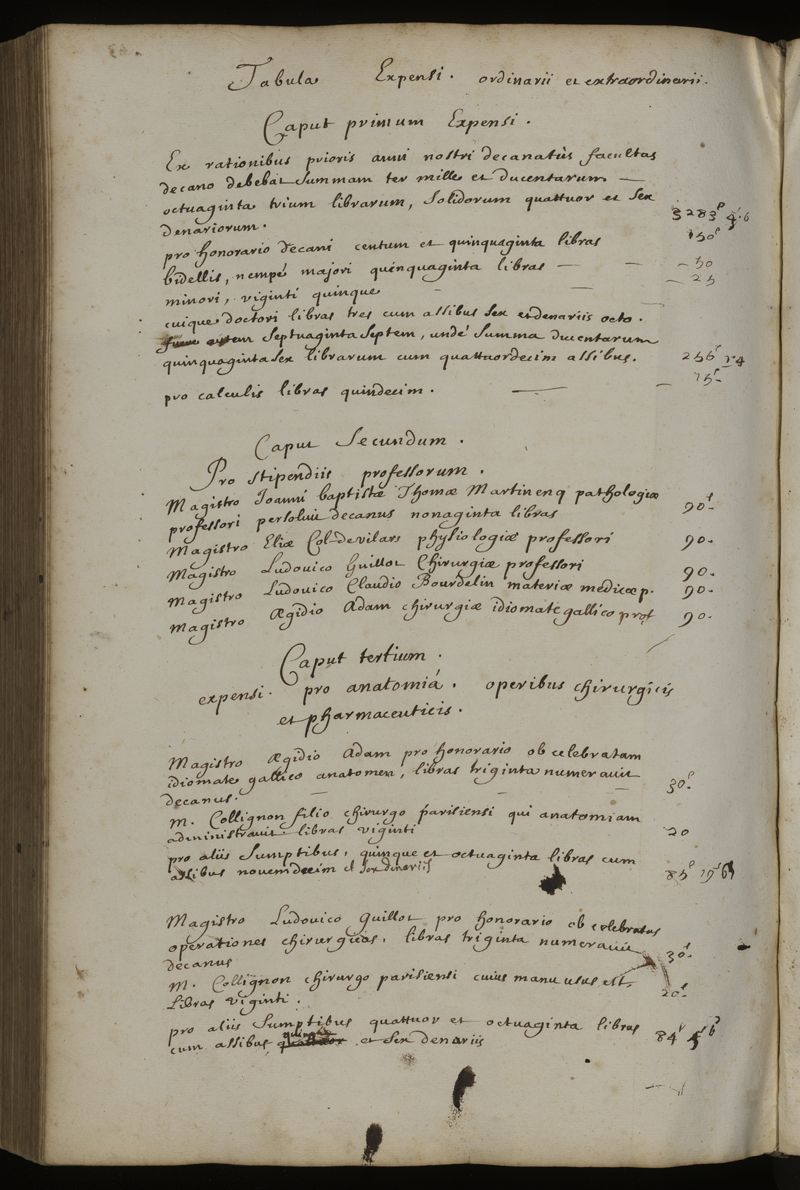 Tabula Expensi. ordinarii et extraordinarii.
Caput primum Expensi.
Ex rationibus prioris anni nostri decanatûs facultas
decano debebat summam ter mille et ducentarum —
octuaginta trium librarum, solidorum quattuor et sex 3283ᶠ 4ˢ 6
denariorum.
pro honorario decani centum et quinquaginta libras 150ᶠ
bidellis, nempé majori quinquaginta libras — — — 50
minori, viginti quinque — — — 25
cuique doctori libras tres cum assibus sex et denariis octo.
septuaginta septem, undé summa ducentarum
quinquaginta sex librarum cum quattuordecim assibus. 256ᶠ 14
pro calculis libras quindecim. — — 15ᶠ
Caput secundum.
Pro stipendiis professorum.
Magistro Joanni baptistæ Thomæ Martinenq pathologiæ
professori persoluit decanus nonaginta libras 90ᶠ
Magistro Eliæ Col-de vilars physiologiæ professori 90.
Magistro Ludovico Guillot Chirurgiæ professori 90.
Magistro Ludovico Claudio Bourdelin materiæ medicæ p. 90.
Magistro Ægidio Adam chirurgiæ idiomate gallico prof 90.
Caput tertium.
expensi. pro anatomiá. operibus chirurgicis
et pharmaceuticis.
Magistro Ægidio Adam pro honorario ob celebratam
idiomate gallico anatomen, libras triginta numeravit
decanus. — — — 30ᶠ
M. Collignon filio chirurgo parisiensi qui anatomiam
administravit libras viginti 20
pro aliis sumptibus, quinque et octuaginta libras cum
assibus novemdecim et sex denariis 85ᶠ 19ˢ 6ᵈ
Magistro Ludovico Guillot pro honorario ob celebratas
operationes chirurgicas, libras triginta numeravit
decanus 30ᶠ
M. Collignon chirurgo parisiensi cuius manu usus est,
Libras viginti. 20ᶠ
pro aliis sumptibus quattuor et octuaginta libras
cum assibus quinque et sex denariis 84ᶠ 5ˢ 6ᵈ